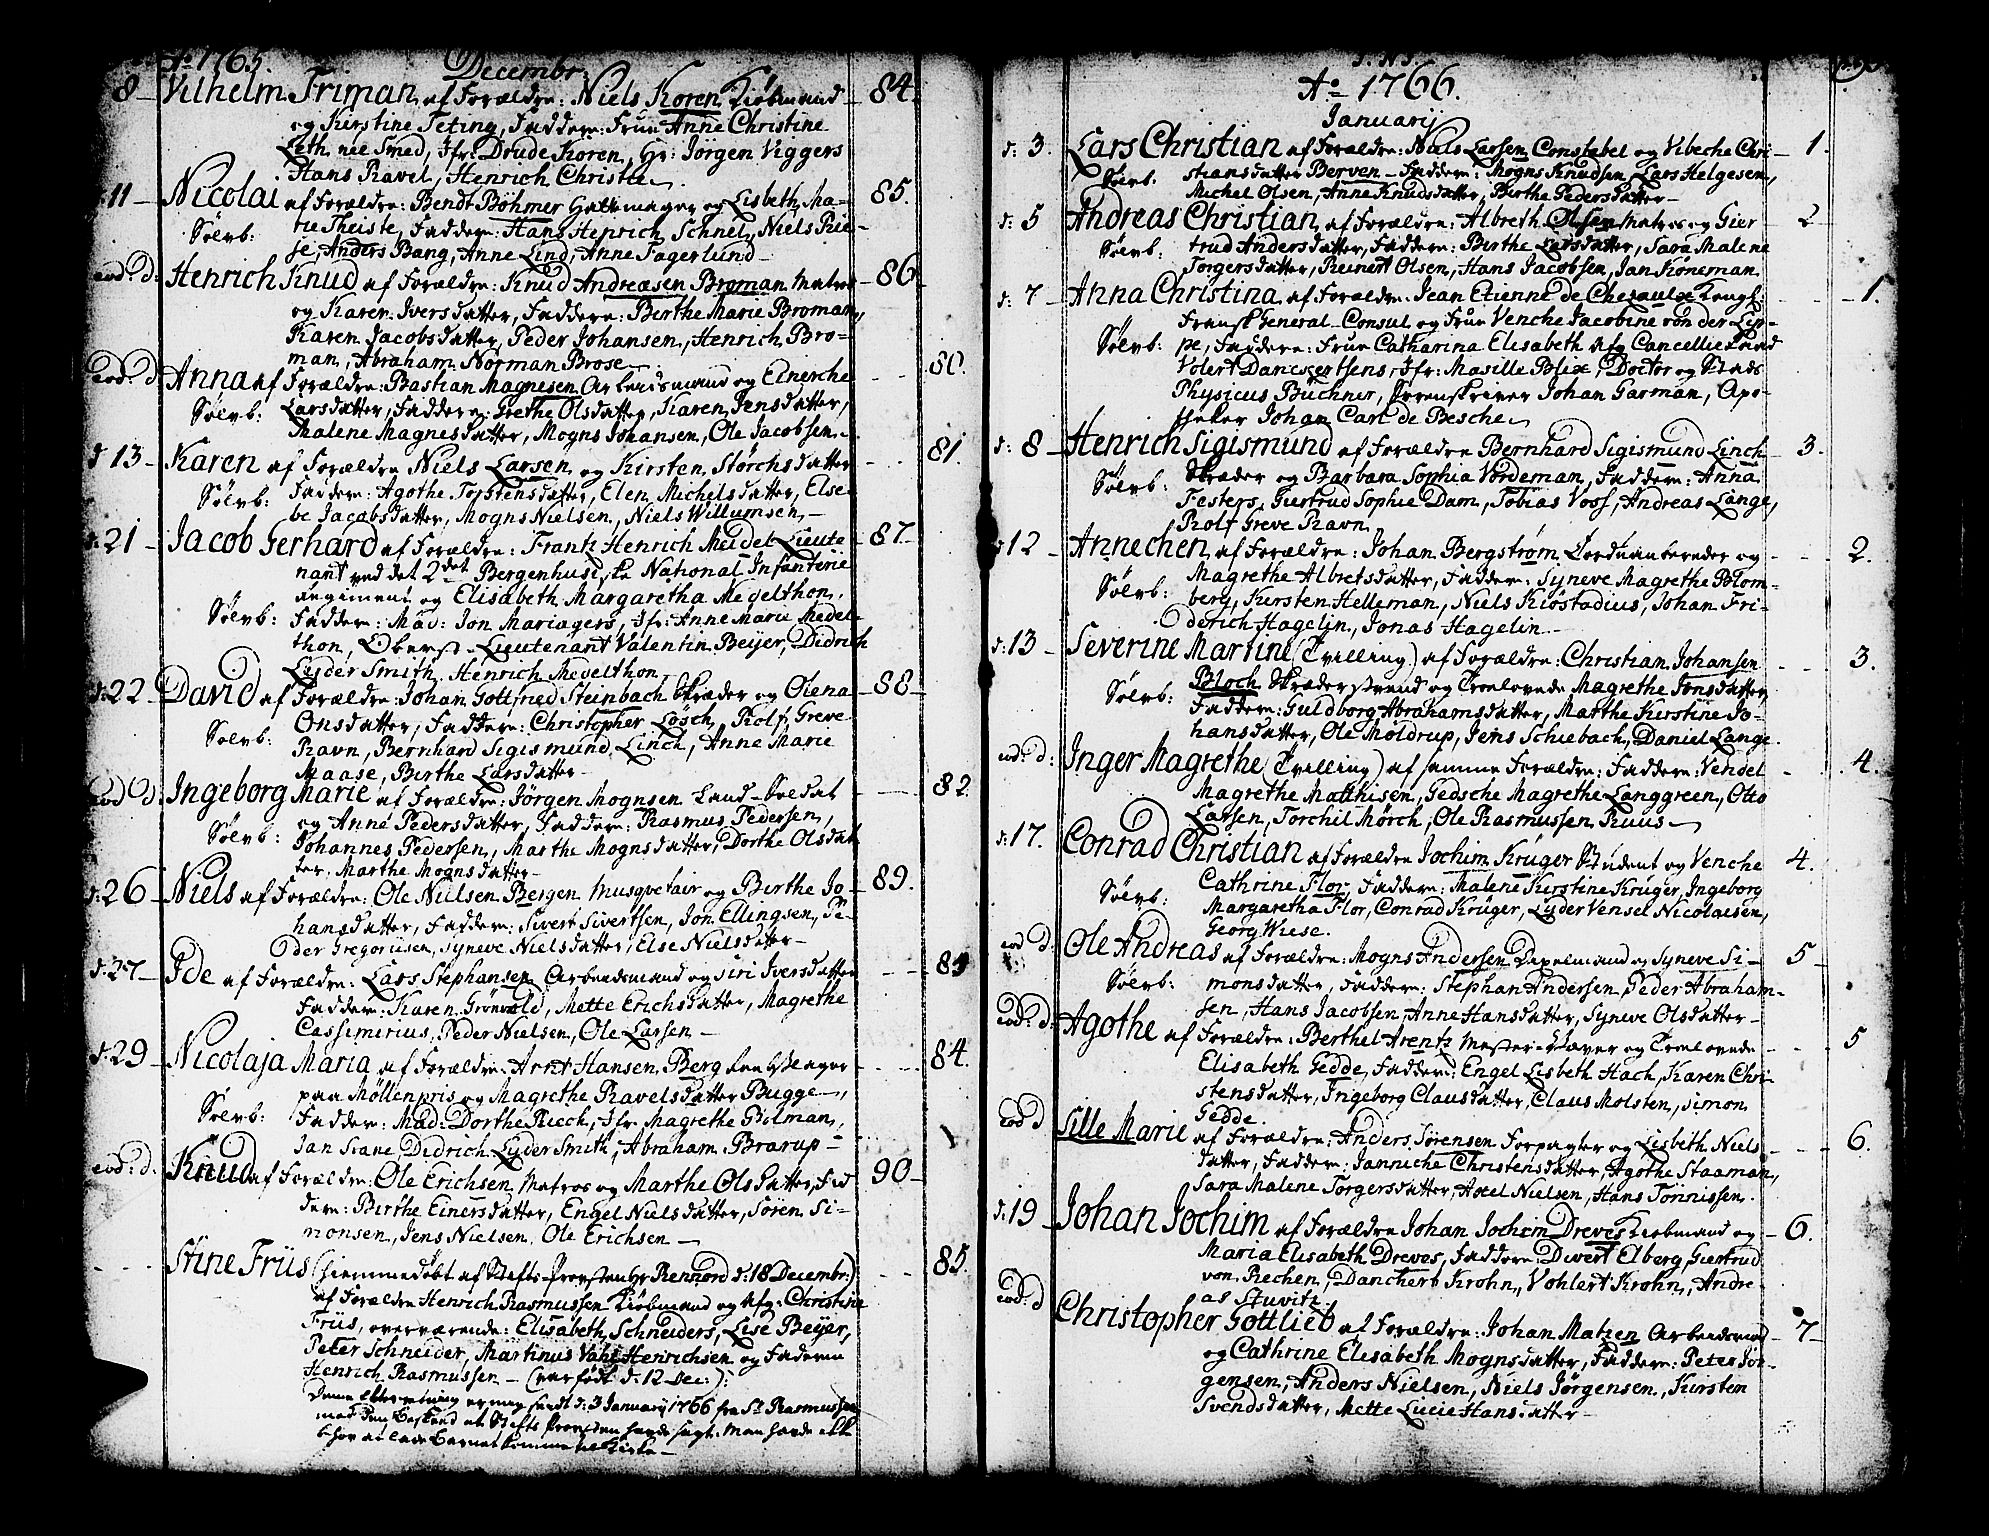 Ao 1765. Decembr:
8 Vilhelm Friman af Forældre: Niels Koren Kiøbmand 84.
og Kirstine Teting, Faddere: Frue Anne Christine
Leth née Smed, Jfr: Drude Koren, Hr: Jörgen Viggers
Hans Ravel, Henrich Christie
d:11 Nicolai af Forældre: Bendt Böhmer Hattemager og Lisbeth Ma- 85.
Sölvb: trie Theiste, Faddere: Hans Henrich Schnel, Niels Rie-
se, Anders Bang, Anne Lind, Anne Fagerlund
eod: d: Henrich Knud af Forældre: Knud Andreæsen Broman Matros 86
og Karen Iversdatter, Faddere: Birthe Marie Broman,
Karen Jacobsdatter, Peder Johansen, Henrich Bro-
man, Abraham Norman Brose
eod: d: Anna af Forældre: Bastian Magnesen Arbeidsmand og Einerche 80.
Sölvb: Larsdatter, Faddere: Grethe Olsdatter, Karen Jensdatter,
Malene Magnesdatter, Mogns Johansen, Ole Jacobsen
d 13 Karen af Forældre Niels Larsen og Kirsten Störchsdatter 81.
Sölvb: Faddere: Agothe Torstensdatter, Elen Michelsdatter, Else-
be Jacobsdatter, Mogns Nielsen, Niels Willumsen
d:21 Jacob Gerhard af Forældre: Frantz Henrich Meidel Lieute 87.
nant ved det 2det Bergenhusiske National Infanterie
Regiment og Elisabeth Margaretha Megelthon,
Sölvb: Faddere: Mad: Jon Mariagers, Jfr: Anne Marie Medel-
thon, Oberst-Lieutenant Valentin Beijer, Didrich
Lyder Smith, Henrich Medelthon
d:22 David af Forældre: Johan Gottfried Steinbach Skræder og Olena 88
Sölvb: Onsdatter, Faddere: Christopher Lösch, Rolf Greve
Ravn, Bernhard Sigismund Linch, Anne Marie
Maase, Birthe Larsdatter
eod d: Ingeborg Marie af Forældre: Jörgen Mognsen Land-Soldat 82.
Sölvb: og Anne Pedersdatter, Faddere: Rasmus Pedersen,
Johannes Pedersen, Marthe Mognsdatter, Dorthe Olsdat
ter, Marthe Mognsdatter
d:26 Niels af Forældre: Ole Nielsen Bergen Musquetair og Birthe Jo- 89.
hansdatter, Faddere: Sivert Sivertsen, Jon Ellingsen, Pe-
der Gregoriisen, Syneve Nielsdatter, Else Nielsdatter
d:27 Ide af Forældre: Lars Stephansen Arbeidsmand og Siri Iversdatter 83
Faddere: Karen Grönvold, Mette Erichsdatter, Magrethe
Cassimerius, Peder Nielsen, Ole Larsen
d:29 Nicolaja Maria af Forældre: Arnt Hansen Berg 84.
paa Möllenpris og Magrethe Ravelsdatter Bugge,
Sölvb: Faddere: Mad: Dorthe Riech, Jfr. Magrethe Bilman,
Jan Svane, Didrich Lyder Smith, Abraham Brarup
eod: d: Knud af Forældre: Ole Erichsen Matros og Marthe Olsdatter, Fad 90
dere: Birthe Einersdatter, Engel Nielsdatter, Sören Si-
monsen, Jens Nielsen, Ole Erichsen
Stine Friis (hiemmedöbt af Stifts-Provsten Hr Rennord d: 18 Decembr:) 85.
af Forældre Henrich Rasmussen Kiøbmand og Afg: Christine
Friis, overværende: Elisabeth Schneiders, Lise Beÿer,
Peter Schneider, Martinus Vahl Henrichsen og Faderen
Henrich Rasmussen (var född d: 12 Dec:)
Denne efterretning er mig sendt d: 3 January 1766 fra Sr Rasmussen
med den Beskeed at Stifts Provsten havde sagt: Man havde ikke
behov at lade Barnet komme til Kirke
J. N. J.
Ao 1766.
Januarij
d: 3. Lars Christian af Forældre: Niels Larsen Constabel og Viberche Chri- 1.
Sölvb. stiansdatter Berven, Faddere: Mogns Knudsen, Lars Helgesen,
Michel Olsen, Anne Knudsdatter, Birthe Pedersdatter
d: 5 Andreas Christian af Forældre: Albreth Olsen Matros og Gier 2
Sölvb: trud Andersdatter, Faddere: Birthe Larsdatter, Sara Malene
Torgersdatter, Reinert Olsen, Hans Jacobsen, Jan Köneman
d: 7 Anna Christina af Forældre Jean Etienne de Chezaulx Kongl: 1.
Fransk General-Consul og Frue Venche Jacobine von der Lip-
Sölvb: pe, Faddere: Frue Catharina Elisabeth Afg Cancellieraad
Volert Danckertsens, Jfr: Masille Blix, Doctor og Stads
Physicus Büchner, Sorenskriver Johan Garman, Apo-
theker Johan Carl de Besche
d: 8 Henrich Sigismund af Forældre Bernhard Sigismund Linch 3.
Sölvb: Skræder og Barbara Sophia Vordeman, Faddere: Anna
Festers, Giertrud Sophie Dam, Tobias Voss, Andreas Lange,
Rolf Greve Ravn
d:12 Annechen af Forældre: Johan Bergström Corduanbereder og 2.
Sölvb: Magrethe Albretsdatter, Faddere: Syneve Magrethe Blom-
berg, Kirsten Helleman, Niels Kiöstadius, Johan Fri-
derich Hagelin, Jonas Hagelin
d:13 Severine Martine (Tvilling) af Forældre: Christian Johansen 3.
Sölvb: Bloch Skædersvend og Trolovede Magrethe Jonsdatter
Faddere: Guldborg Abrahamsdatter, Marthe Kirstine Jo-
hansdatter, Ole Möldrup, Jens Schiebach, Daniel Lange
eod: d: Inger Magrethe (Tvilling) af samme Forældre: Faddere: Vendel 4.
Magrethe Matthisen, Gedsche Magrethe Langgreen, Otto
Larsen, Torchil Mörch, Ole Rasmussen Ruus
d:17. Conrad Christian af Forældre Jochim Krüger Student og Venche 4.
Sölvb: Cathrine Flor, Faddere: Malene Kirstine Krüger, Ingeborg
Margaretha Flor, Conrad Krüger, Lyder Vensel Nicolaisen,
Georg Wiese.
eod d: Ole Andreas af Forældre: Mogns Andersen og Syneve Si- 5
Sölvb: monsdatter, Faddere: Stephan Andersen, Peder Abraham-
sen, Hans Jacobsen, Anne Hansdatter, Syneve Olsdatter
eod: d: Agothe af Forældre: Berthel Arentz Mester-Væver og Trolovede 5
Elisabeth Gedde, Faddere: Engel Lisbeth Hach, Karen Chri-
stensdatter, Ingeborg Clausdatter, Claus Molsten, Simon
Gedde.
eod d Sille Marie af Forældre: Anders Sörensen Forpagter og Lisbeth Niels 6.
datter, Faddere: Janniche Christensdatter, Agothe Staaman,
Sara Malene Torgersdatter, Axel Nielsen, Hans Tönnissen.
d:19 Johan Jochim af Forældre Johan Jochim Dreves Kiøbmand og 6.
Maria Elisabeth Dreves, Faddere: Divert Elberg, Giertrud
von Rechen, Danchert Krohn, Vohlert Krohn, Andre
as Stuvitz.
eod: d Christopher Gottlieb af Forældre: Johan Matzen Arbeidsmand 7
og Cathrine Elisabeth Mognsdatter, Faddere: Peter Jör-
gensen, Anders Nielsen, Niels Jörgensen, Kirsten
Svendsdatter, Mette Lucie Hansdatter